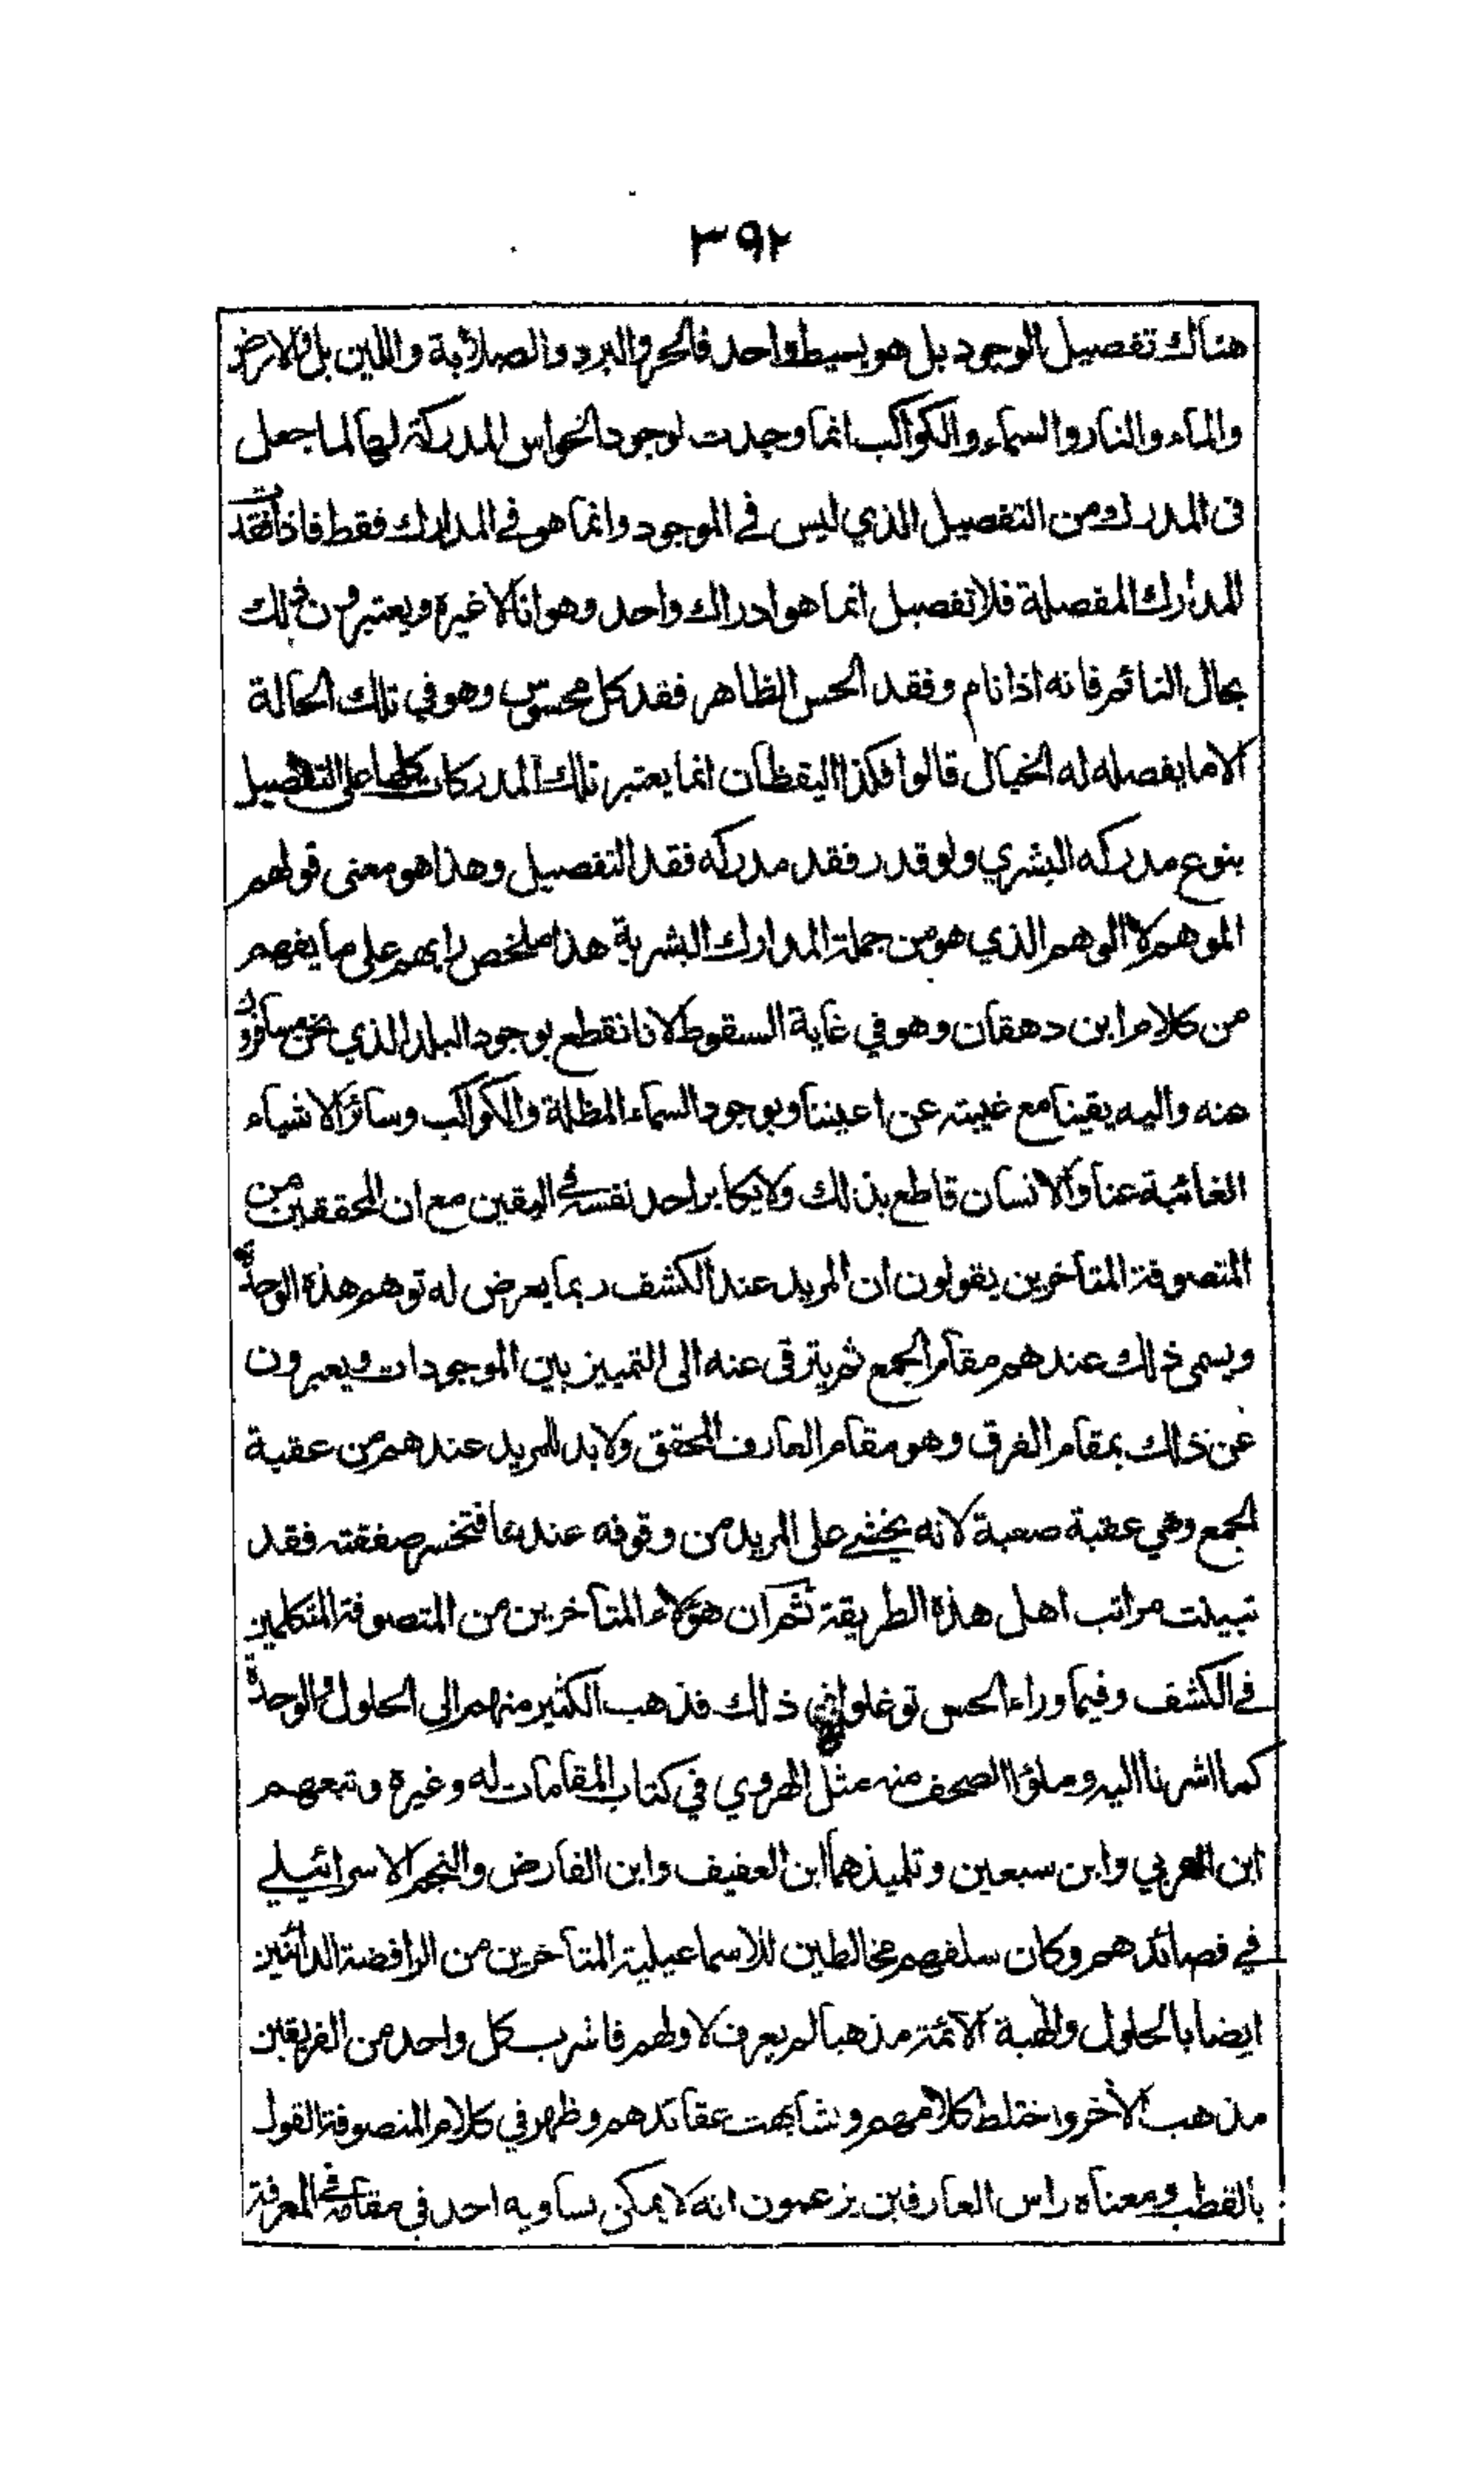 ٣٩٢
هناك تفصيل الوجود بل هو بسيط واحد فالحر والبرد والصلابة واللين بل والارض
والماء والنار والسماء والكواكب انما وجدت لوجود الحواس المدركة لها لما جعل
في المدرك من التفصيل الذي ليس في الموجود وانما هو في المدارك فقط فاذا فقدت
المدارك المفصلة فلا تفصيل انما هو ادراك واحد وهو انا لا غيره ويعتبرون ذلك
بحال النائم فانه اذا نام وفقد الحس الظاهر فقد كل محسوس وهو في تلك الحالة
الا ما يفصله له الخيال قالوا فكذا اليقظان انما يعتبر تلك المدركات كلها على التفصيل
بنوع مدركه البشري ولو قدر فقد مدركه فقد التفصيل وهذا هو معنى قولهم
الموهم لا الوهم الذي هو من جملة المدارك البشرية هذا ملخص رايهم على ما يفهم
من كلام ابن دهقان وهو في غاية السقوط لانا نقطع بوجود البلد الذي نحن مسافرون
عنه واليه يقينا مع غيبته عن اعيننا وبوجود السماء المظلة والكواكب وسائر الاشياء
الغائبة عنا والانسان قاطع بذلك ولا يكابر احد نفسه في اليقين مع ان المحققين من
المتصوفة المتأخرين يقولون ان المريد عند الكشف ربما يعرض له توهم هذه الوحدة
ويسمى ذلك عندهم مقام الجمع ثم يترقى عنه الى التمييز بين الموجودات ويعبرون
عن ذلك بمقام الفرق وهو مقام العارف المحقق ولا بد للمريد عندهم من عقبة
الجمع وهي عقبة صعبة لانه يخشى على المريد من وقوفه عندها فتخسر صفقته فقد
تبينت مراتب اهل هذه الطريقة ثم ان هؤلاء المتأخرين من المتصوفة المتكلمين
في الكشف وفيما وراء الحس توغلوا في ذلك فذهب الكثير منهم الى الحلول والوحدة
كما اشرنا اليه وملؤا الصحف منه مثل الهروي في كتاب المقامات له وغيره وتبعهم
ابن العربي وابن سبعين وتلميذهما ابن العفيف وابن الفارض والنجم الاسرائيلي
في قصائدهم وكان سلفهم مخالطين للاسماعيلية المتأخرين من الرافضة الدائنين
ايضا بالحلول والهية الائمة مذهبا لم يعرف لاولهم فاشرب كل واحد من الفريقين
مذهب الاخر واختلط كلامهم وتشابهت عقائدهم وظهر في كلام المتصوفة القول
بالقطب ومعناه راس العارفين يزعمون انه لا يمكن يساويه احد في مقامه في المعرفة